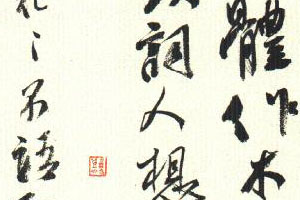 體作木
詞人想
花〻不語